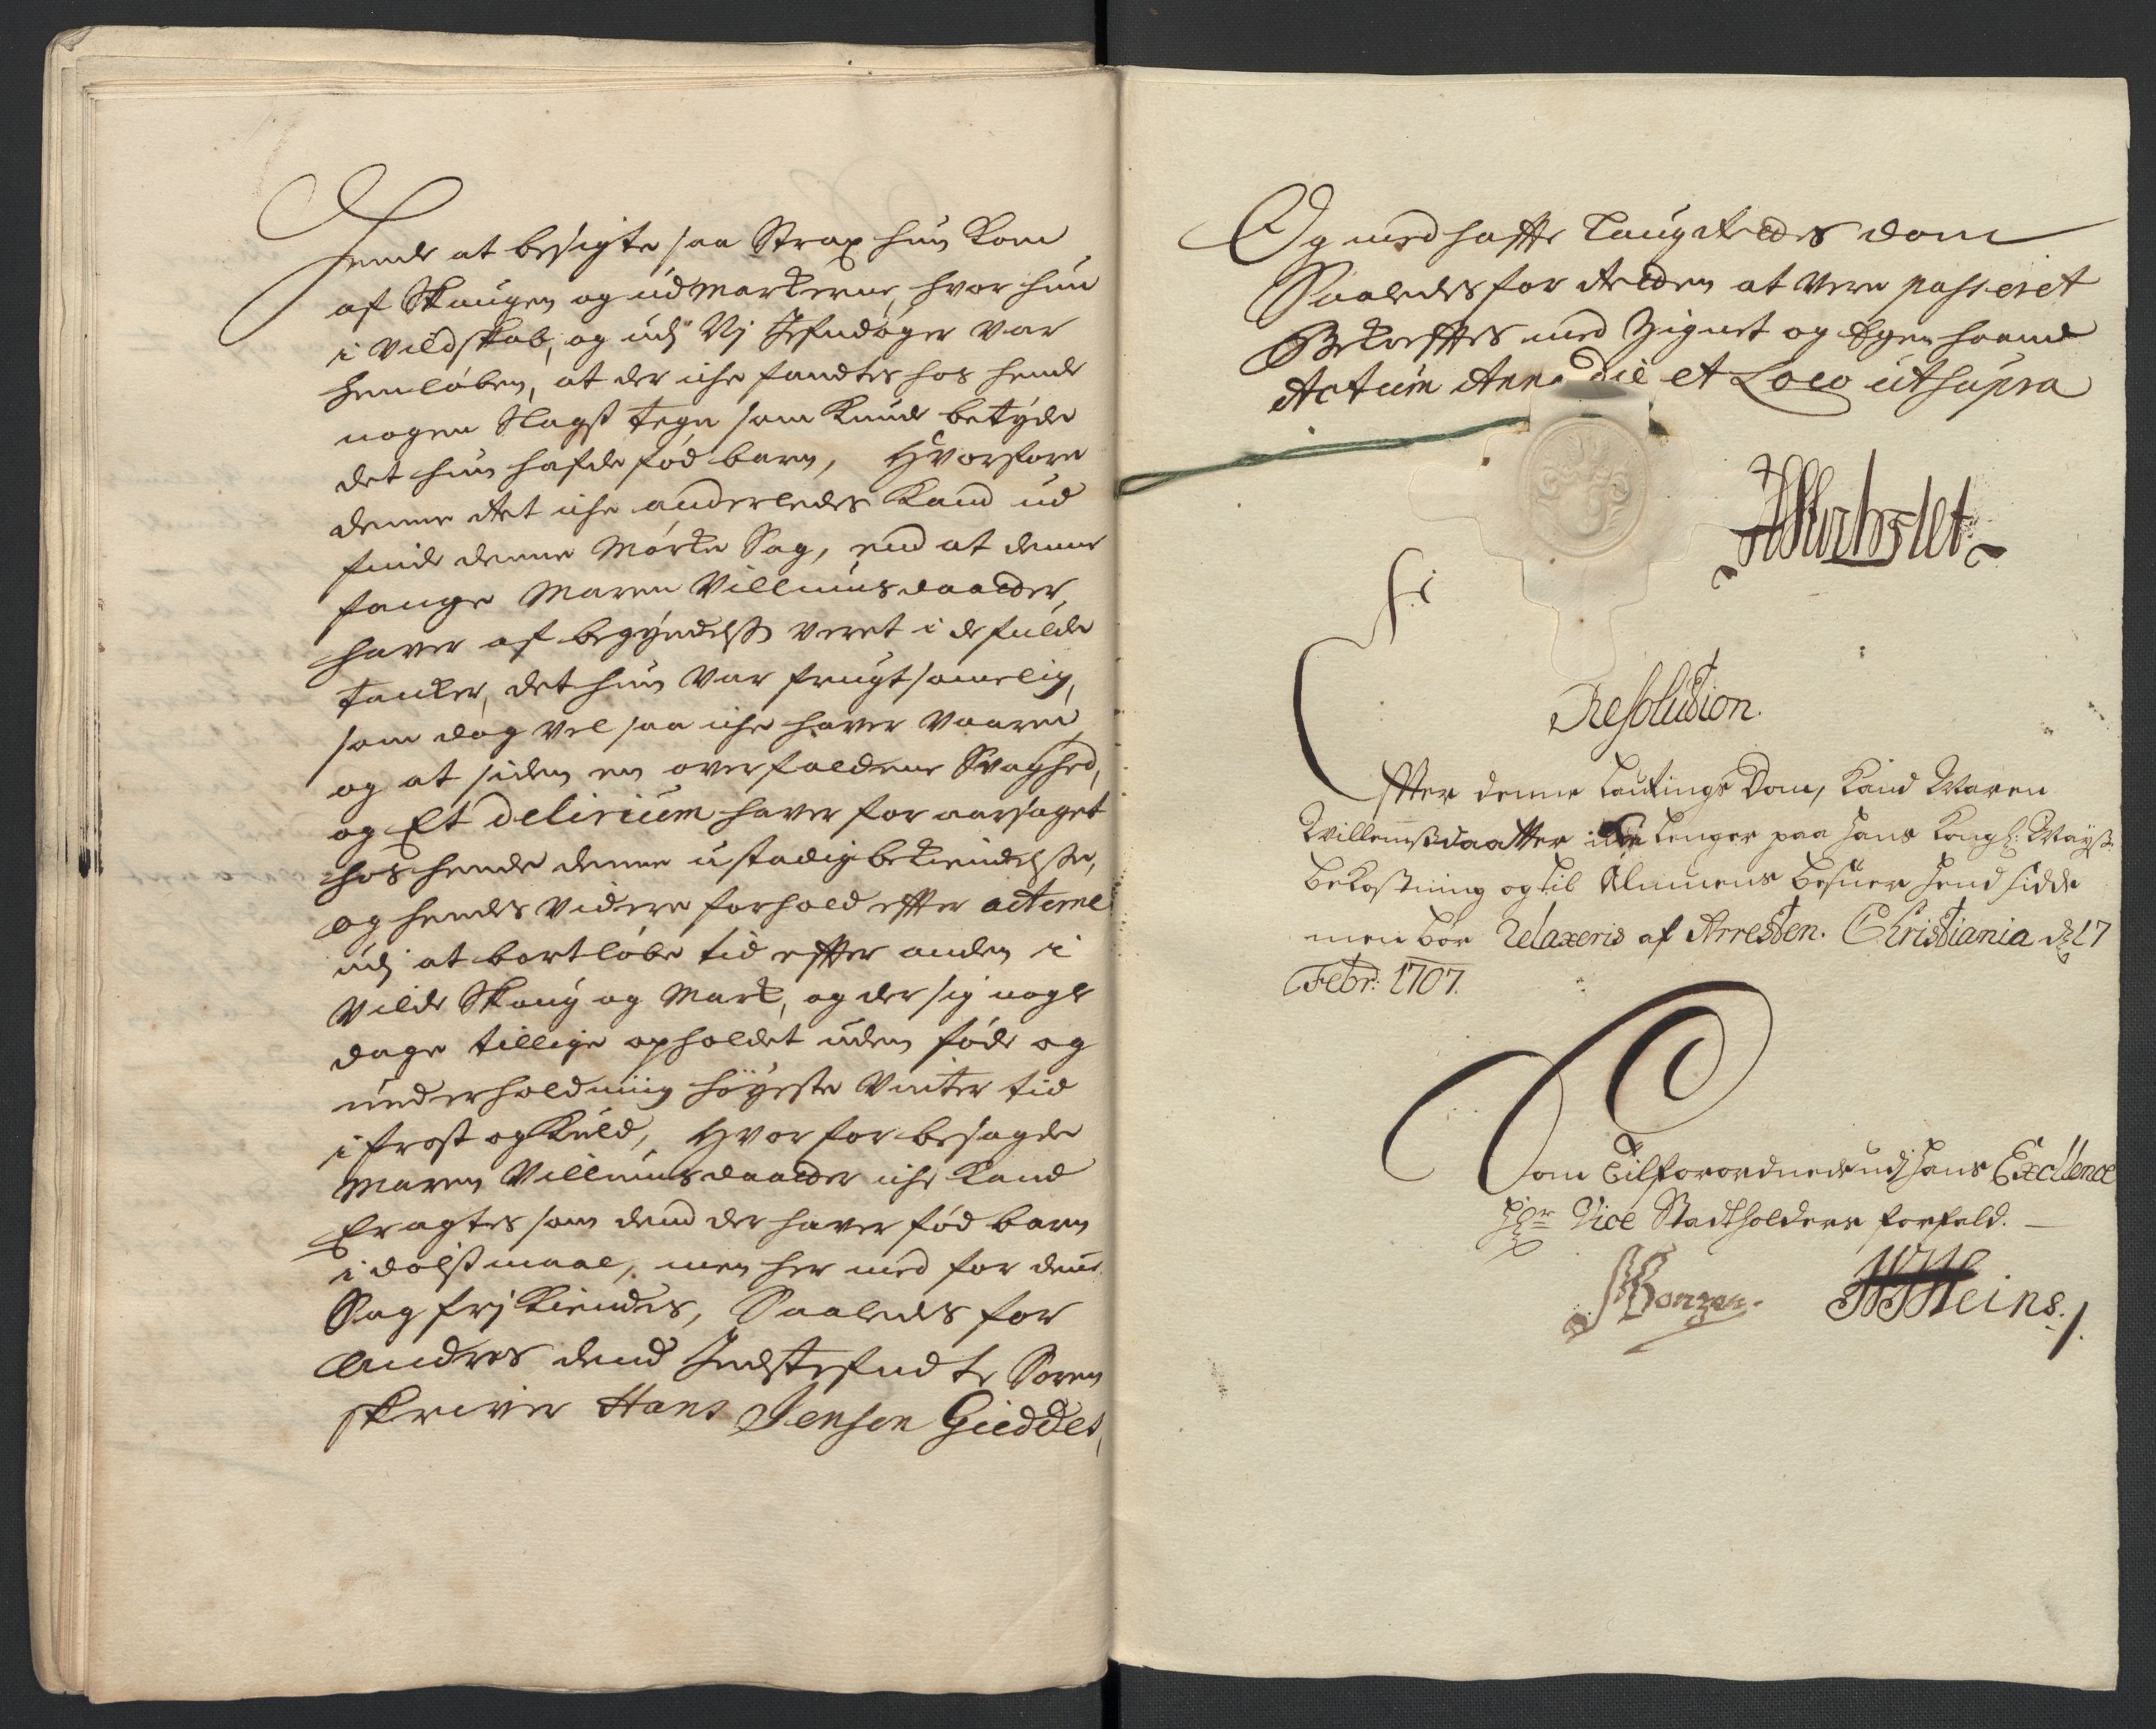 hende at besigte saa Strax hun kom
af Skaugen og udmarkerne, hvor hun
i Vildskab, og udj Vj Jefndøger var
henløben, at der iche fandtes hos hende
nogen Slags tegn som kunde betyde
det hun hafde fød barn, Hvorfore
denne Ret iche anderledes kand ud
finde denne Mørke Sag, end at denne
fange Maren Villumsdaatter
haver af begyndelsen veret i de fulde
tanker, det hun var frugtsommelig,
som dog vel saa iche haver vaaren,
og at siden en overfaldene Svaghed,
og Et delirium haver foraarsaget
hos hende denne ustadig bekiendelse,
og hendes videre forhold effter acterne
udj at bortløbe tid effter anden i
Vilde Skoug og Mark, og der sig nogle
dage tillige opholdet uden føde og
underholdning høyeste Vinter tid
i frost og kuld, Hvorfor besagde
Maren Villumsdaatter iche kand
Eragtes som dend der haver fød barn
i dølssmaal, men her med for denne
Sag frj kiendes, Saaledes for
andres dend Indstefndte Soren
skriver Hans Jensen Gieddes,
Og med hafte Laugrettes dom
Saaledes for Retten at vere passeret
Bekrefftes med Zignet og Egen haand
Actum Anno die et Loco ut supra
Resolution.
Effter denne Lautings Dom, kand Maren
Willumsdaatter iche lenger paa Hans Kongl: Mayst:
bekostning og til Almuens besuer hend sidde
men bør relaxeris af Arresten. Christiania d: 17
Febr: 1707.
Som Tilforordnede udj Hans Excellence
Hr Vice Stadtholders forfald.